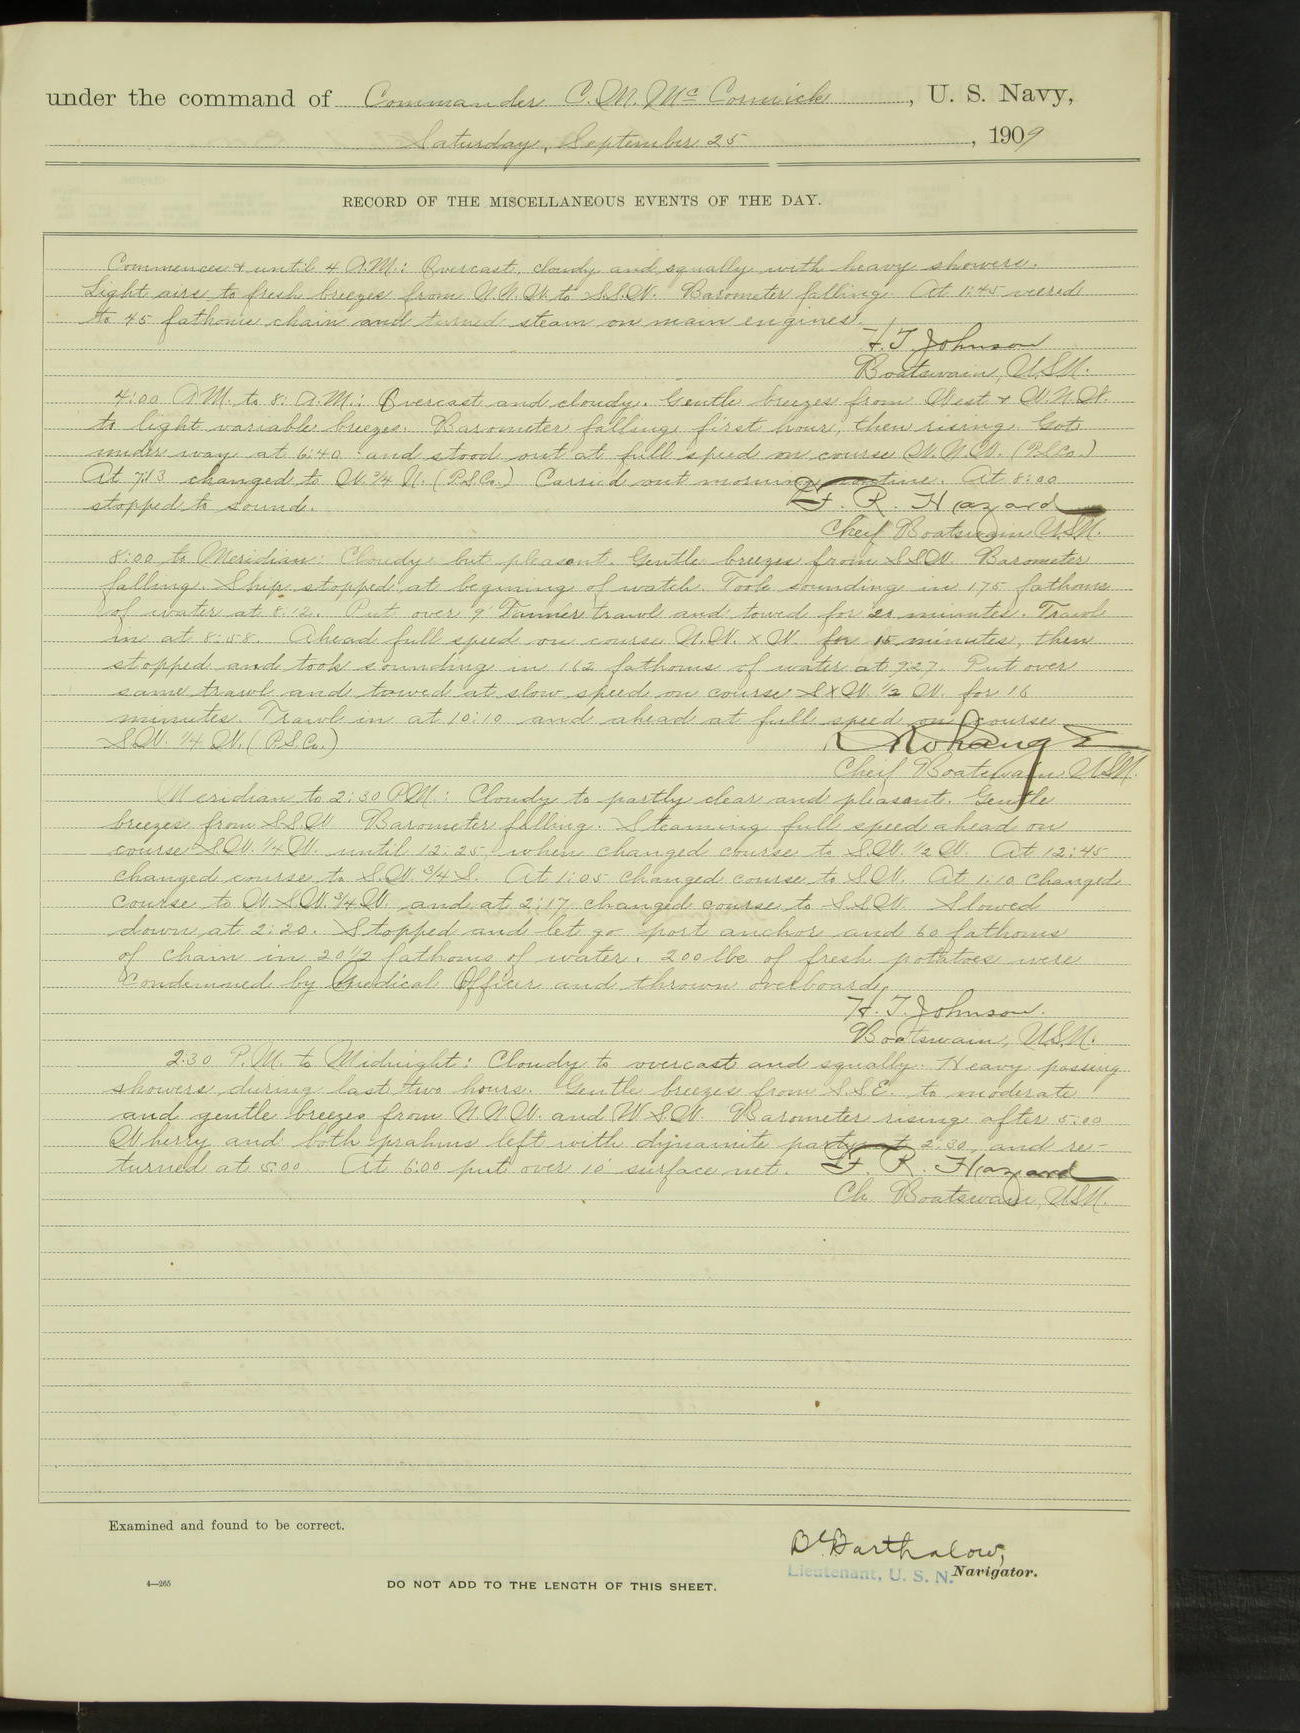 under the command of Commander C. M. McCormick, U. S. Navy,
Saturday, September 25, 1909
RECORD OF THE MISCELLANEOUS EVENTS OF THE DAY.
Commences & until 4 A.M.: Overcast, cloudy and squally with heavy showers.
Light airs to fresh breezes from N.N.W. to S.S.W. Barometer falling. At 1:45 veered
to 45 fathoms chain and turned steam on main engines.
H. T. Johnson
Boatswain, U.S.N.
4:00 A.M. to 8: A.M.: Overcast and cloudy. Gentle breezes from West & W.N.W.
to light variable breezes. Barometer falling first hour, then rising. Got
under way at 6:40 and stood out at full speed on course W.N.W. (P.S.Co.)
At 7:13 changed to W. 3/4 N. (P.S.Co.) Carried out morning routine. At 8:00
stopped to sound.
F. R. Hazard
Cheif Boatswain U.S.N.
8:00 to Meridian: Cloudy but pleasant. Gentle breezes from S.S.W. Barometer
falling. Ship stopped at begining of watch. Took sounding in 175 fathoms
of water at 8:12. Put over 9' Tanner trawl and towed for 21 minutes. Trawl
in at 8:58. Ahead full speed on course N.W. x W. for 15 minutes, then
stopped and took sounding in 162 fathoms of water at 9:27. Put over
same trawl and towed at slow speed on course S x W. 1/2 W. for 16
minutes. Trawl in at 10:10 and ahead at full speed on course
S.W. 1/4 W. (P.S.Co.)
Cheif Boatswain U.S.N.
Meridian to 2:30 P.M.: Cloudy to partly clear and pleasant. Gentle
breezes from S.S.W. Barometer falling. Steaming full speed ahead on
course S.W. 1/4 W. until 12:25, when changed course to S.W. 1/2 W. At 12:45
changed course to S.W. 3/4 S. At 1:05 changed course to S.W. At 1:10 changed
course to W.S.W. 3/4 W. and at 2:17 changed course to S.S.W. Slowed
down at 2:20. Stopped and let go port anchor and 60 fathoms
of chain in 20 1/2 fathoms of water. 200 lbs of fresh potatoes were
condemned by Medical Officer and thrown overboard.
H. T. Johnson.
Boatswain, U.S.N.
2:30 P.M. to Midnight: Cloudy to overcast and squally. Heavy passing
showers during last two hours. Gentle breezes from S.S.E. to moderate
and gentle breezes from N.N.W. and W.S.W. Barometer rising after 5:00
Wherry and both prahms left with dynamite party at 2:30, and re-
turned at 5:00 At 6:00 put over 10' surface net.
F. R. Hazard
Ch. Boatswain, U.S.N.
Examined and found to be correct.
Barthalow,
Lieutenant, U. S. N. Navigator.
4—265
DO NOT ADD TO THE LENGTH OF THIS SHEET.